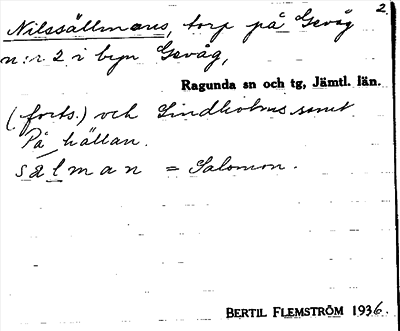 2.
Nilssällmans, torp på Gevåg
n:r 2 i byn Gevåg,
Ragunda sn och tg, Jämtl. län.
(forts.) och Lindholms samt
På hällan.
sälman = Salomon.
BERTIL FLEMSTRÖM 1936.